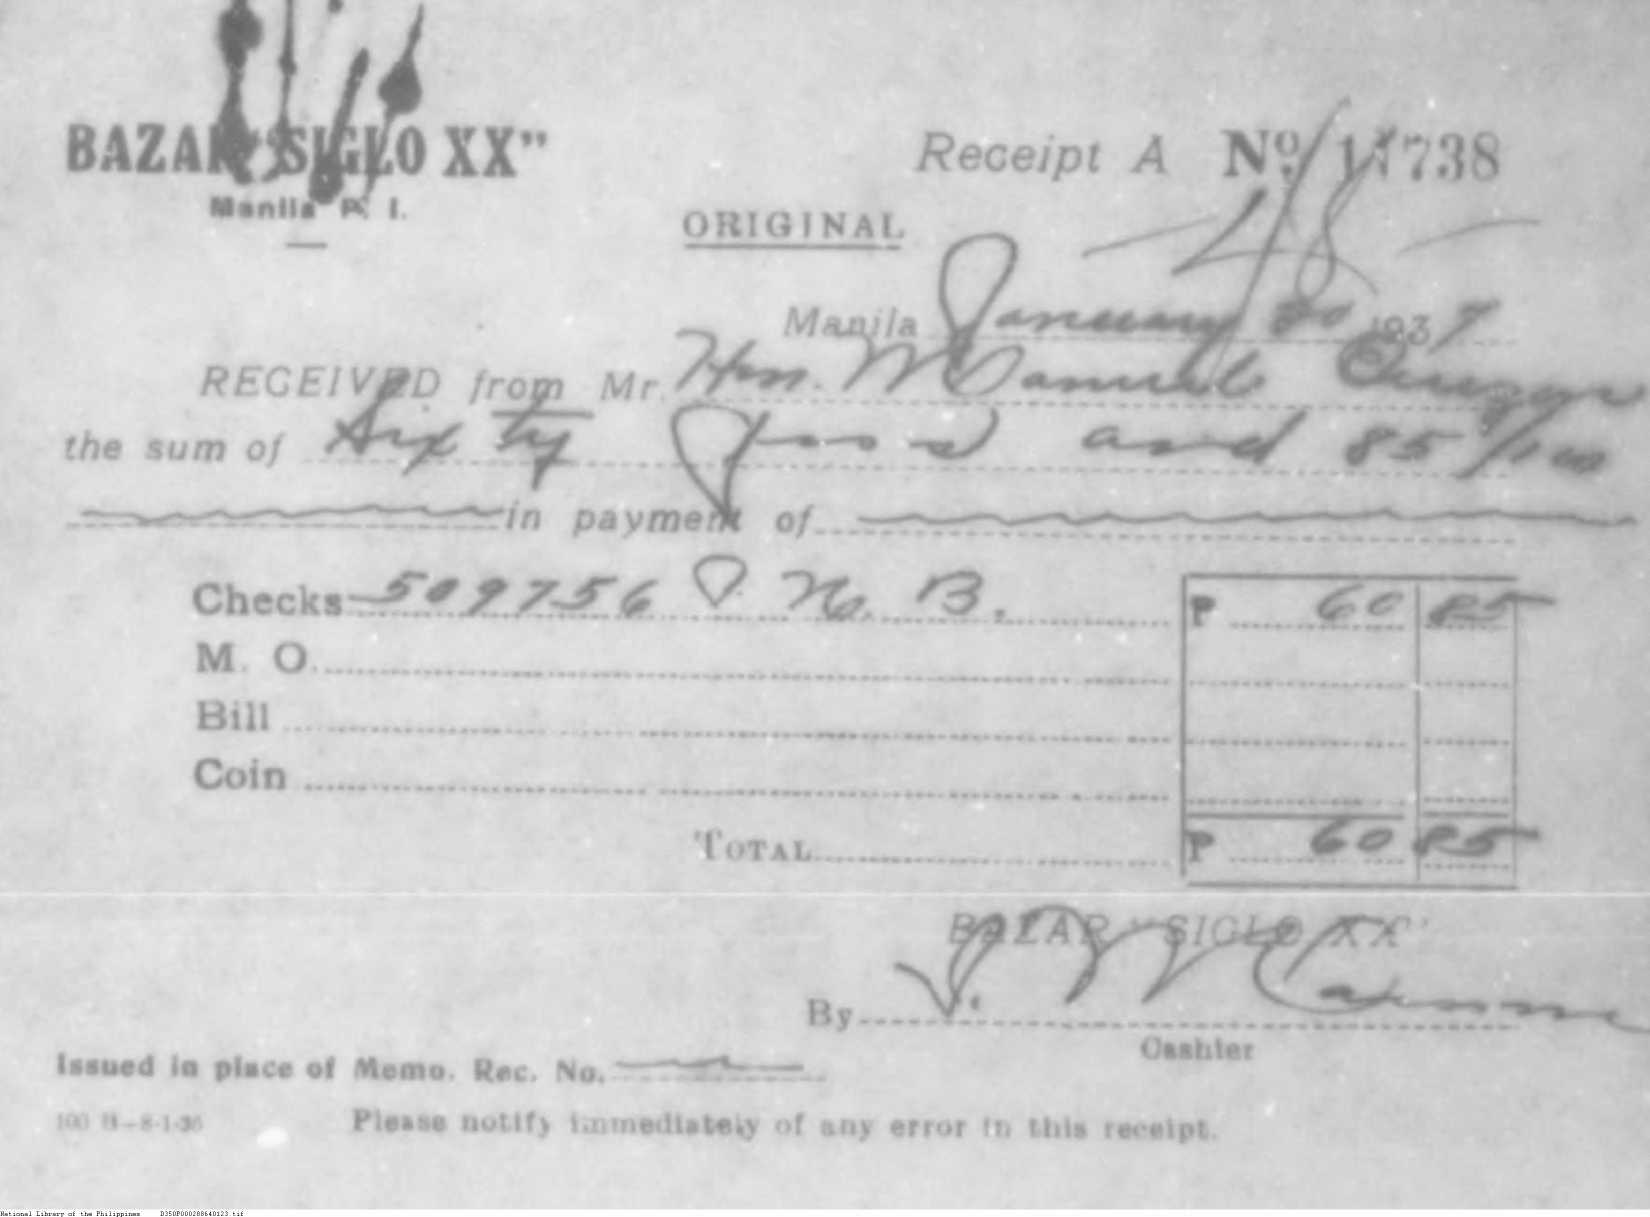 BAZAR "SIGLO XX"
Manila P. I.
Receipt A No 11738
48
ORIGINAL
Manila January 20 1937
RECEIVED from Mr. Hon. Manuel
the sum of Sixty Pesos and 85/100
in payment of
Checks 509756 P. N. B. P 60 85
M. O.
Bill
Coin
TOTAL P 60 85
BAZAR "SIGLO XX"
By
Cashier
Issued in place of Memo. Rec. No.
100 B-8-1-36 Please notify immediately of any error in this receipt.
National Library of the Philippines D350P000288640123.tif